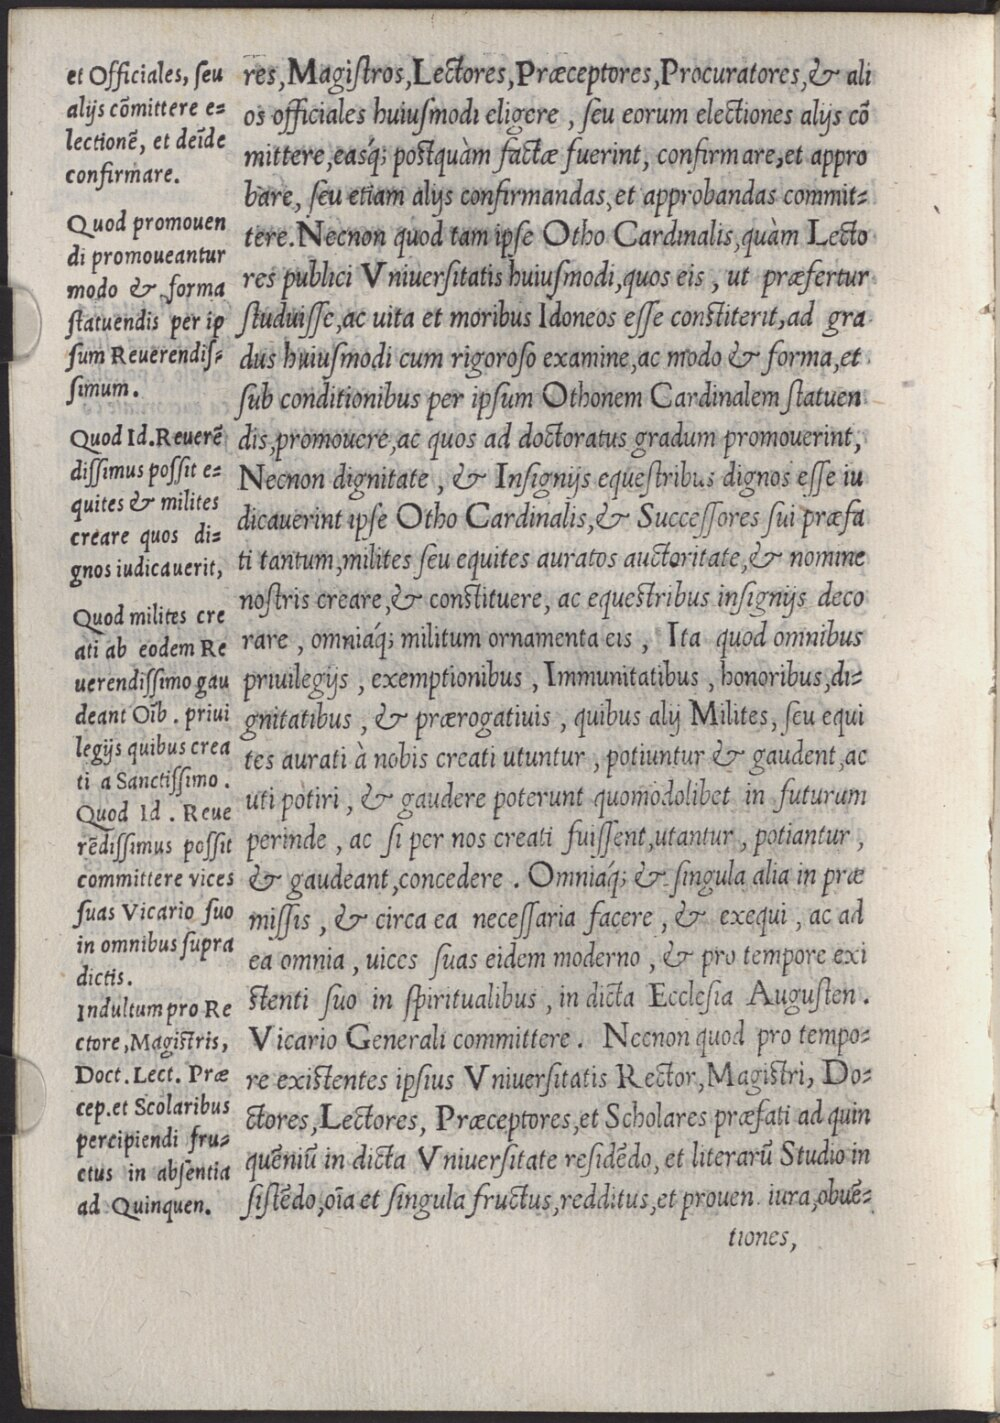 et Officiales, ſeu
alijs cõmittere e=
lectionẽ, et deĩde
confirmare.
Quod promouen
di promoueantur
modo & forma
ſtatuendis per ip
ſum Reuerendiſ=
ſimum.
Quod Id. Reuerẽ
diſſimus poſſit e=
quites & milites
creare quos di=
gnos iudicauerit,
Quod milites cre
ati ab eodem Re
uerendiſſimo gau
deant Oĩb. priui
legijs quibus crea
ti a Sanctiſſimo.
Quod Id. Reue
rẽdiſſimus poſſit
committere vices
ſuas Vicario ſuo
in omnibus ſupra
dictis.
Indultum pro Re
ctore, Magiſtris,
Doct. Lect. Præ
cep. et Scolaribus
percipiendi fru=
ctus in abſentia
ad Quinquen.
res, Magiſtros, Lectores, Præceptores, Procuratores, & ali
os officiales huiuſmodi eligere, ſeu eorum electiones alijs cõ
mittere, eaſq́; poſtquàm factæ fuerint, confirmare, et appro
bare, ſeu etiam alijs confirmandas, et approbandas commit=
tere. Necnon quod tam ipſe Otho Cardinalis, quàm Lecto
res publici Vniuerſitatis huiuſmodi, quos eis, ut præfertur
ſtuduiſſe, ac uita et moribus Idoneos eſſe conſtiterit, ad gra
dus huiuſmodi cum rigoroſo examine, ac modo & forma, et
ſub conditionibus per ipſum Othonem Cardinalem ſtatuen
dis, promouere, ac quos ad doctoratus gradum promouerint,
Necnon dignitate, & Inſignijs equeſtribus dignos eſſe iu
dicauerint ipſe Otho Cardinalis, & Succeſſores ſui præfa
ti tantum, milites ſeu equites auratos auctoritate, & nomine
noſtris creare, & conſtituere, ac equeſtribus inſignijs deco
rare, omniaq́; militum ornamenta eis, Ita quod omnibus
priuilegijs, exemptionibus, Immunitatibus, honoribus, di=
gnitatibus, & prærogatiuis, quibus alij Milites, ſeu equi
tes aurati à nobis creati utuntur, potiuntur & gaudent, ac
uti potiri, & gaudere poterunt quomodolibet in futurum
perinde, ac ſi per nos creati fuiſſent, utantur, potiantur,
& gaudeant, concedere. Omniaq́; & ſingula alia in præ
miſſis, & circa ea neceſſaria facere, & exequi, ac ad
ea omnia, uices ſuas eidem moderno, & pro tempore exi
ſtenti ſuo in ſpiritualibus, in dicta Eccleſia Auguſten.
Vicario Generali committere. Necnon quod pro tempo=
re exiſtentes ipſius Vniuerſitatis Rector, Magiſtri, Do=
ctores, Lectores, Præceptores, et Scholares præfati ad quin
quẽniũ in dicta Vniuerſitate reſidẽdo, et literarũ Studio in
ſiſtẽdo, oĩa et ſingula fructus, redditus, et prouen. iura, obuẽ=
tiones,